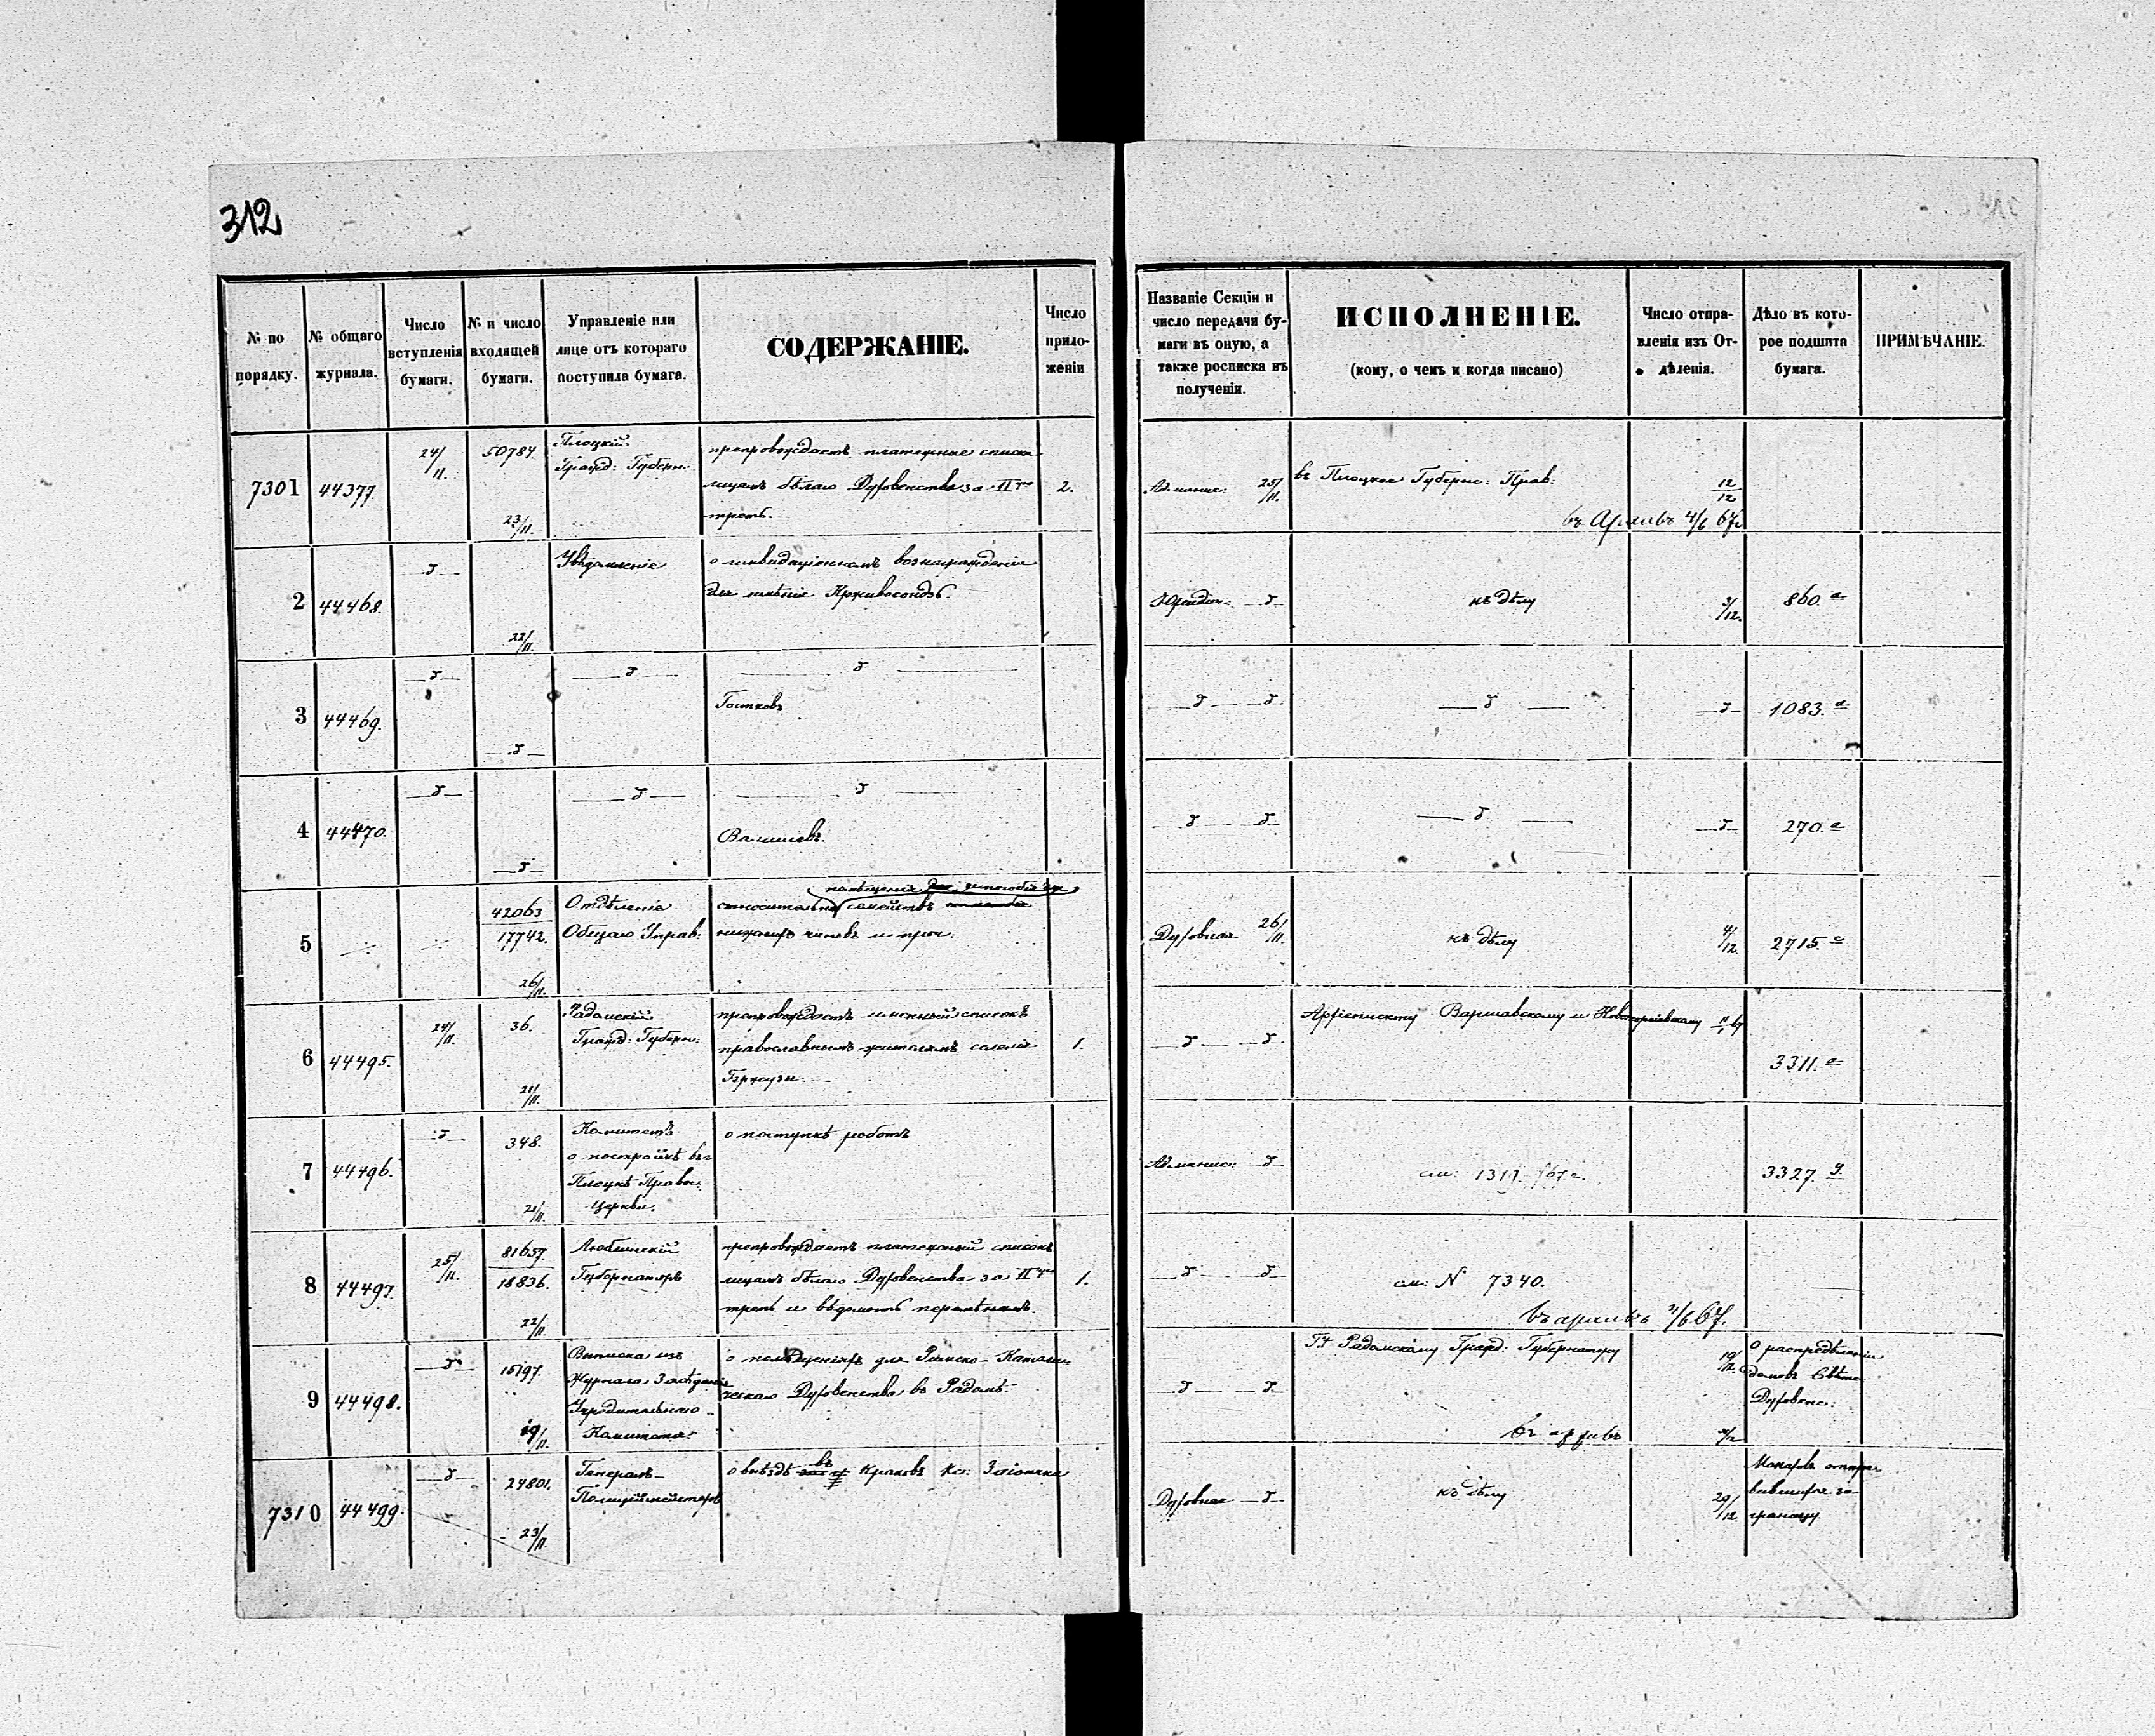 312
№ по порядку.
№ общаго журнала.
Число вступленія бумаги.
№ и число входящей бумаги.
Управленіе или лице отъ котораго поступила бумага.
СОДЕРЖАНІЕ.
Число прило-женій
Названіе Секціи и число передачи бу-маги въ оную, а также росписка въ полученіи.
ИСПОЛНЕНІЕ.
(кому, о чемъ и когда писано)
Число отпра-вленія изъ От-дѣленія.
Дѣло въ кото-рое подшита бумага.
ПРИМѢЧАНІЕ.
7301 44377. 24/11. 50784. 23/11.
Плоцкій
Гражд: Губерн:
препровождаетъ платежные списки
лицамъ бѣлаго Духовенства за II
треть.
2.
25/11.
въ Плоцкое Губерн: Прав:
12/12
въ Архивъ 4/6 67
2 44468. 22/11.
Увѣдомленіе
о ликвидаціонномъ вознагражденіи
для имѣнія Крживосондзъ.
Юридич:
къ дѣлу
3/12.
860. а
3 44469.
Гостковъ
1083. а
4 44470.
270. а
5
42063
17742.
26/11.
Отдѣленіе
Общаго Управ:
относительно семействъ
нижнихъ чиновъ и проч:
Духовная 26/11.
къ дѣлу
4/12.
2715. с
6 44495. 24/11. 36. 21/11.
Радомскій
Гражд: Губерн:
препровождаетъ именный списокъ
православнымъ жителямъ
1.
Архіепископу Варшавскому и Новогеоргіевскому
3311. а
7 44496. 348. 21/11.
Комитетъ
о постройкѣ въ
Плоцкѣ Правос:
Церкви.
о поступкѣ работъ
Админис:
см: 1319. 67 г.
3327.
8 44497. 25/11.
81657.
18836.
22/11.
Люблинскій
Губернаторъ
препровождаетъ платежный списокъ
лицамъ бѣлаго Духовенства за II
треть и вѣдомость перемѣнамъ.
1.
см: N 7340.
въ архивъ 4/6 67.
9 44498. 15197. 19/11.
Выписка изъ
Журнала Засѣданія
Учредительнаго
Комитета:
о помѣщеніяхъ для Римско-Католи-
ческаго Духовенства въ Радомѣ.
Гд Радомскому Гражд: Губернатору
въ архивъ
19/12.
О распредѣленіи
домовъ Свѣтс.
Духовенс:
7310 44499. 24801. 23/11.
Генералъ-
Полицеймейстеръ
о выѣздѣ въ Краковъ Кс: Заіончка
Духовная
къ дѣлу
29/12.
границу